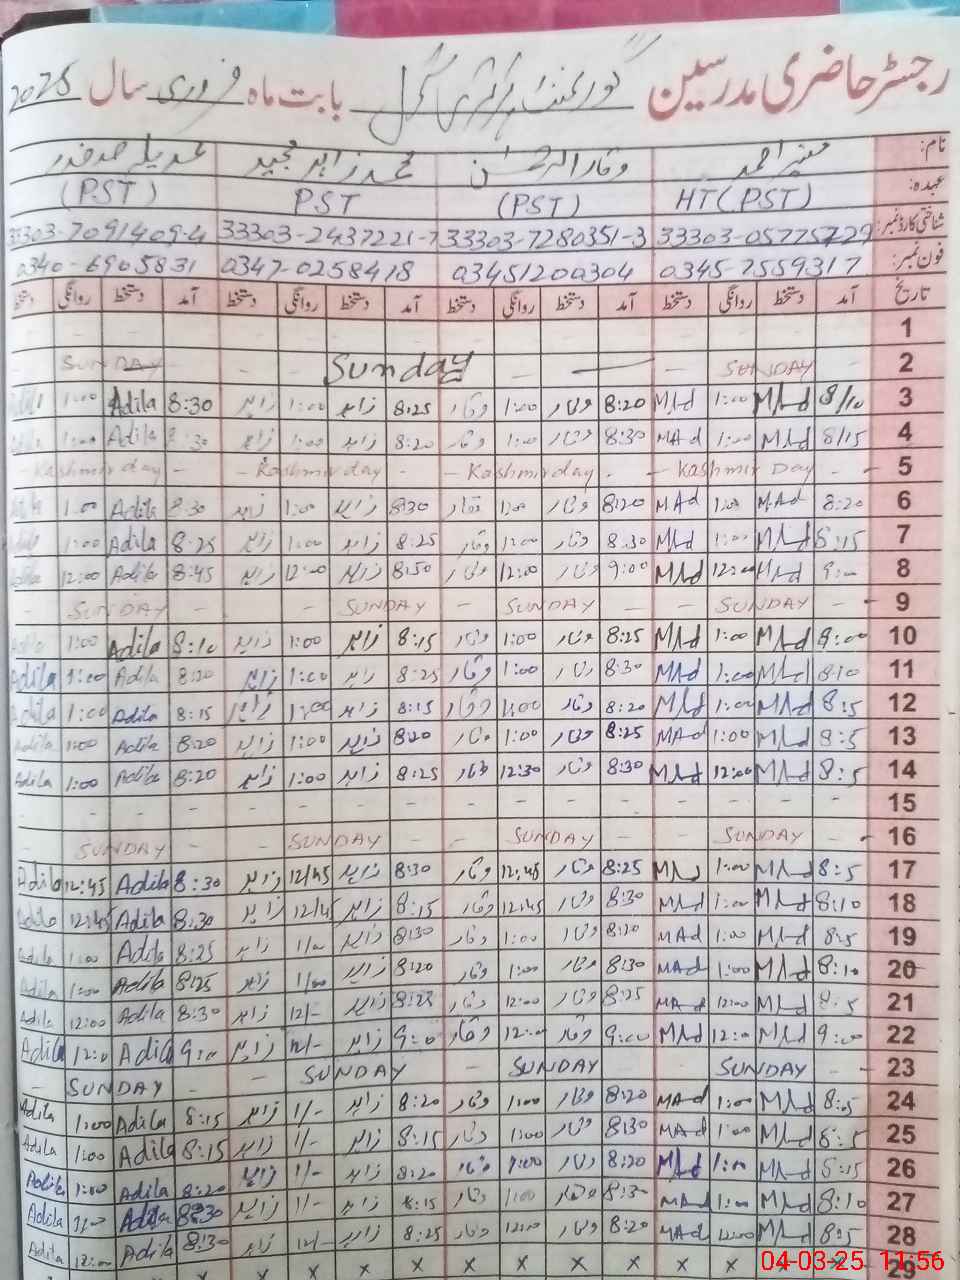 رجسٹر حاضری مدرسین گورنمنٹ پرائمری بابت ماہ فروری سال 2025
نام: منیر احمد وقار الرحمٰن محمد زاہد مجید عدیلہ صفدر
عہدہ: HT(PST) (PST) PST (PST)
شناختی کارڈ نمبر: 33303-0577572 33303-7280351-3 33303-2437221-7 33303-7091409-4
فون نمبر: 0345-7559317 03451200304 0347-0258418 0340-6905831
تاریخ آمد دستخط روانگی دستخط آمد دستخط روانگی دستخط آمد دستخط روانگی دستخط آمد دستخط روانگی دستخط
1 - - - - - -
2 SUNDAY - Sunday - SUNDAY
3 8/10 MAd 1:00 MAd 8:20 وقار 1:00 وقار 8:25 زاہد 1:00 زاہد 8:30 Adila 1:00 Adila
4 8/15 MAd 1:00 MAd 8:30 وقار 1:00 وقار 8:20 زاہد 1:00 زاہد 8:30 Adila 1:00 Adila
5 - Kashmir Day - Kashmir day - Kashmir day - Kashmir day -
6 8:20 MAd 1:00 MAd 8:20 وقار 1:00 وقار 8:30 زاہد 1:00 زاہد 8:30 Adila 1:00 Adila
7 8:15 MAd 1:00 MAd 8:30 وقار 1:00 وقار 8:25 زاہد 1:00 زاہد 8:25 Adila 1:00 Adila
8 9:00 MAd 12:00 MAd 9:00 وقار 12:00 وقار 8:50 زاہد 12:00 زاہد 8:45 Adila 12:00 Adila
9 - SUNDAY - SUNDAY - SUNDAY - SUNDAY -
10 8:00 MAd 1:00 MAd 8:25 وقار 1:00 وقار 8:15 زاہد 1:00 زاہد 8:10 Adila 1:00 Adila
11 8:10 MAd 1:00 MAd 8:30 وقار 1:00 وقار 8:25 زاہد 1:00 زاہد 8:20 Adila 1:00 Adila
12 8:5 MAd 1:00 MAd 8:20 وقار 1:00 وقار 8:15 زاہد 1:00 زاہد 8:15 Adila 1:00 Adila
13 8:5 MAd 1:00 MAd 8:25 وقار 1:00 وقار 8:20 زاہد 1:00 زاہد 8:20 Adila 1:00 Adila
14 8:5 MAd 12:00 MAd 8:30 وقار 12:30 وقار 8:25 زاہد 1:00 زاہد 8:20 Adila 1:00 Adila
15 - - - - - -
16 - SUNDAY - SUNDAY - SUNDAY - SUNDAY -
17 8:5 MAd 1:00 MAd 8:25 وقار 12:45 وقار 8:30 زاہد 12/45 زاہد 8:30 Adila 12:45 Adila
18 8:10 MAd 1:00 MAd 8:30 وقار 12:45 وقار 8:15 زاہد 12/45 زاہد 8:30 Adila 12:45 Adila
19 8:5 MAd 1:00 MAd 8:20 وقار 1:00 وقار 8:30 زاہد 1/00 زاہد 8:25 Adila 1:00 Adila
20 8:10 MAd 1:00 MAd 8:30 وقار 1:00 وقار 8:20 زاہد 1/00 زاہد 8:25 Adila 1:00 Adila
21 8:5 MAd 12:00 MAd 8:25 وقار 12:00 وقار 8:25 زاہد 12/- زاہد 8:30 Adila 12:00 Adila
22 9:00 MAd 12:00 MAd 9:00 وقار 12:00 وقار 9:0 زاہد 12/- زاہد 9:00 Adila 12:0 Adila
23 SUNDAY - SUNDAY - SUNDAY - SUNDAY -
24 8:05 MAd 1:00 MAd 8:20 وقار 1:00 وقار 8:20 زاہد 1/- زاہد 8:15 Adila 1:00 Adila
25 8:5 MAd 1:00 MAd 8:30 وقار 1:00 وقار 8:15 زاہد 1/- زاہد 8:15 Adila 1:00 Adila
26 8:15 MAd 1:00 MAd 8:20 وقار 1:00 وقار 8:20 زاہد 1/- زاہد 8:20 Adila 1:00 Adila
27 8:10 MAd 1:00 MAd 8:30 وقار 1:00 وقار 8:15 زاہد 1/- زاہد 8:30 Adila 1:00 Adila
28 8:5 MAd 12:00 MAd 8:20 وقار 12:00 وقار 8:25 زاہد 12/- زاہد 8:30 Adila 12:00 Adila
29 x x x x x x x x x x x
04-03-25 11:56